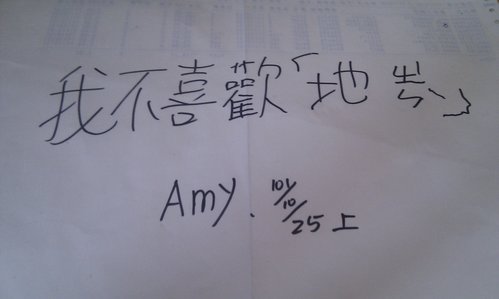 我不喜歡「地 」
Amy. 101/10/25 上